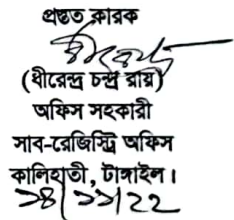 প্রস্তুত কারক
(ধীরেন্দ্র চন্দ্র রায়)
অফিস সহকারী
সাব-রেজিস্ট্রি অফিস
কালিহাতী, টাঙ্গাইল।
১৪/১১/২২